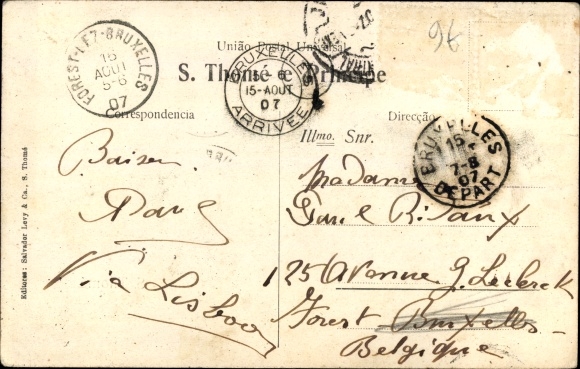 96
FOREST-LEZ-BRUXELLES
16
AOUT
5-6
07
União Postal Universal
BRUXELLES
15-AOUT
07
ARRIVÉE
S. Thomé e Principe
Correspondencia
Direcção
Illmo. Snr.
BRUXELLES
15
7-8
07
DEPART
Baisers
Paul
Via Lisboa
Madame
Paul Risaux
125 Avenue G. Leclerck
Forest Bruxelles
Belgique
Editores: Salvador Levy & Ca., S. Thomé